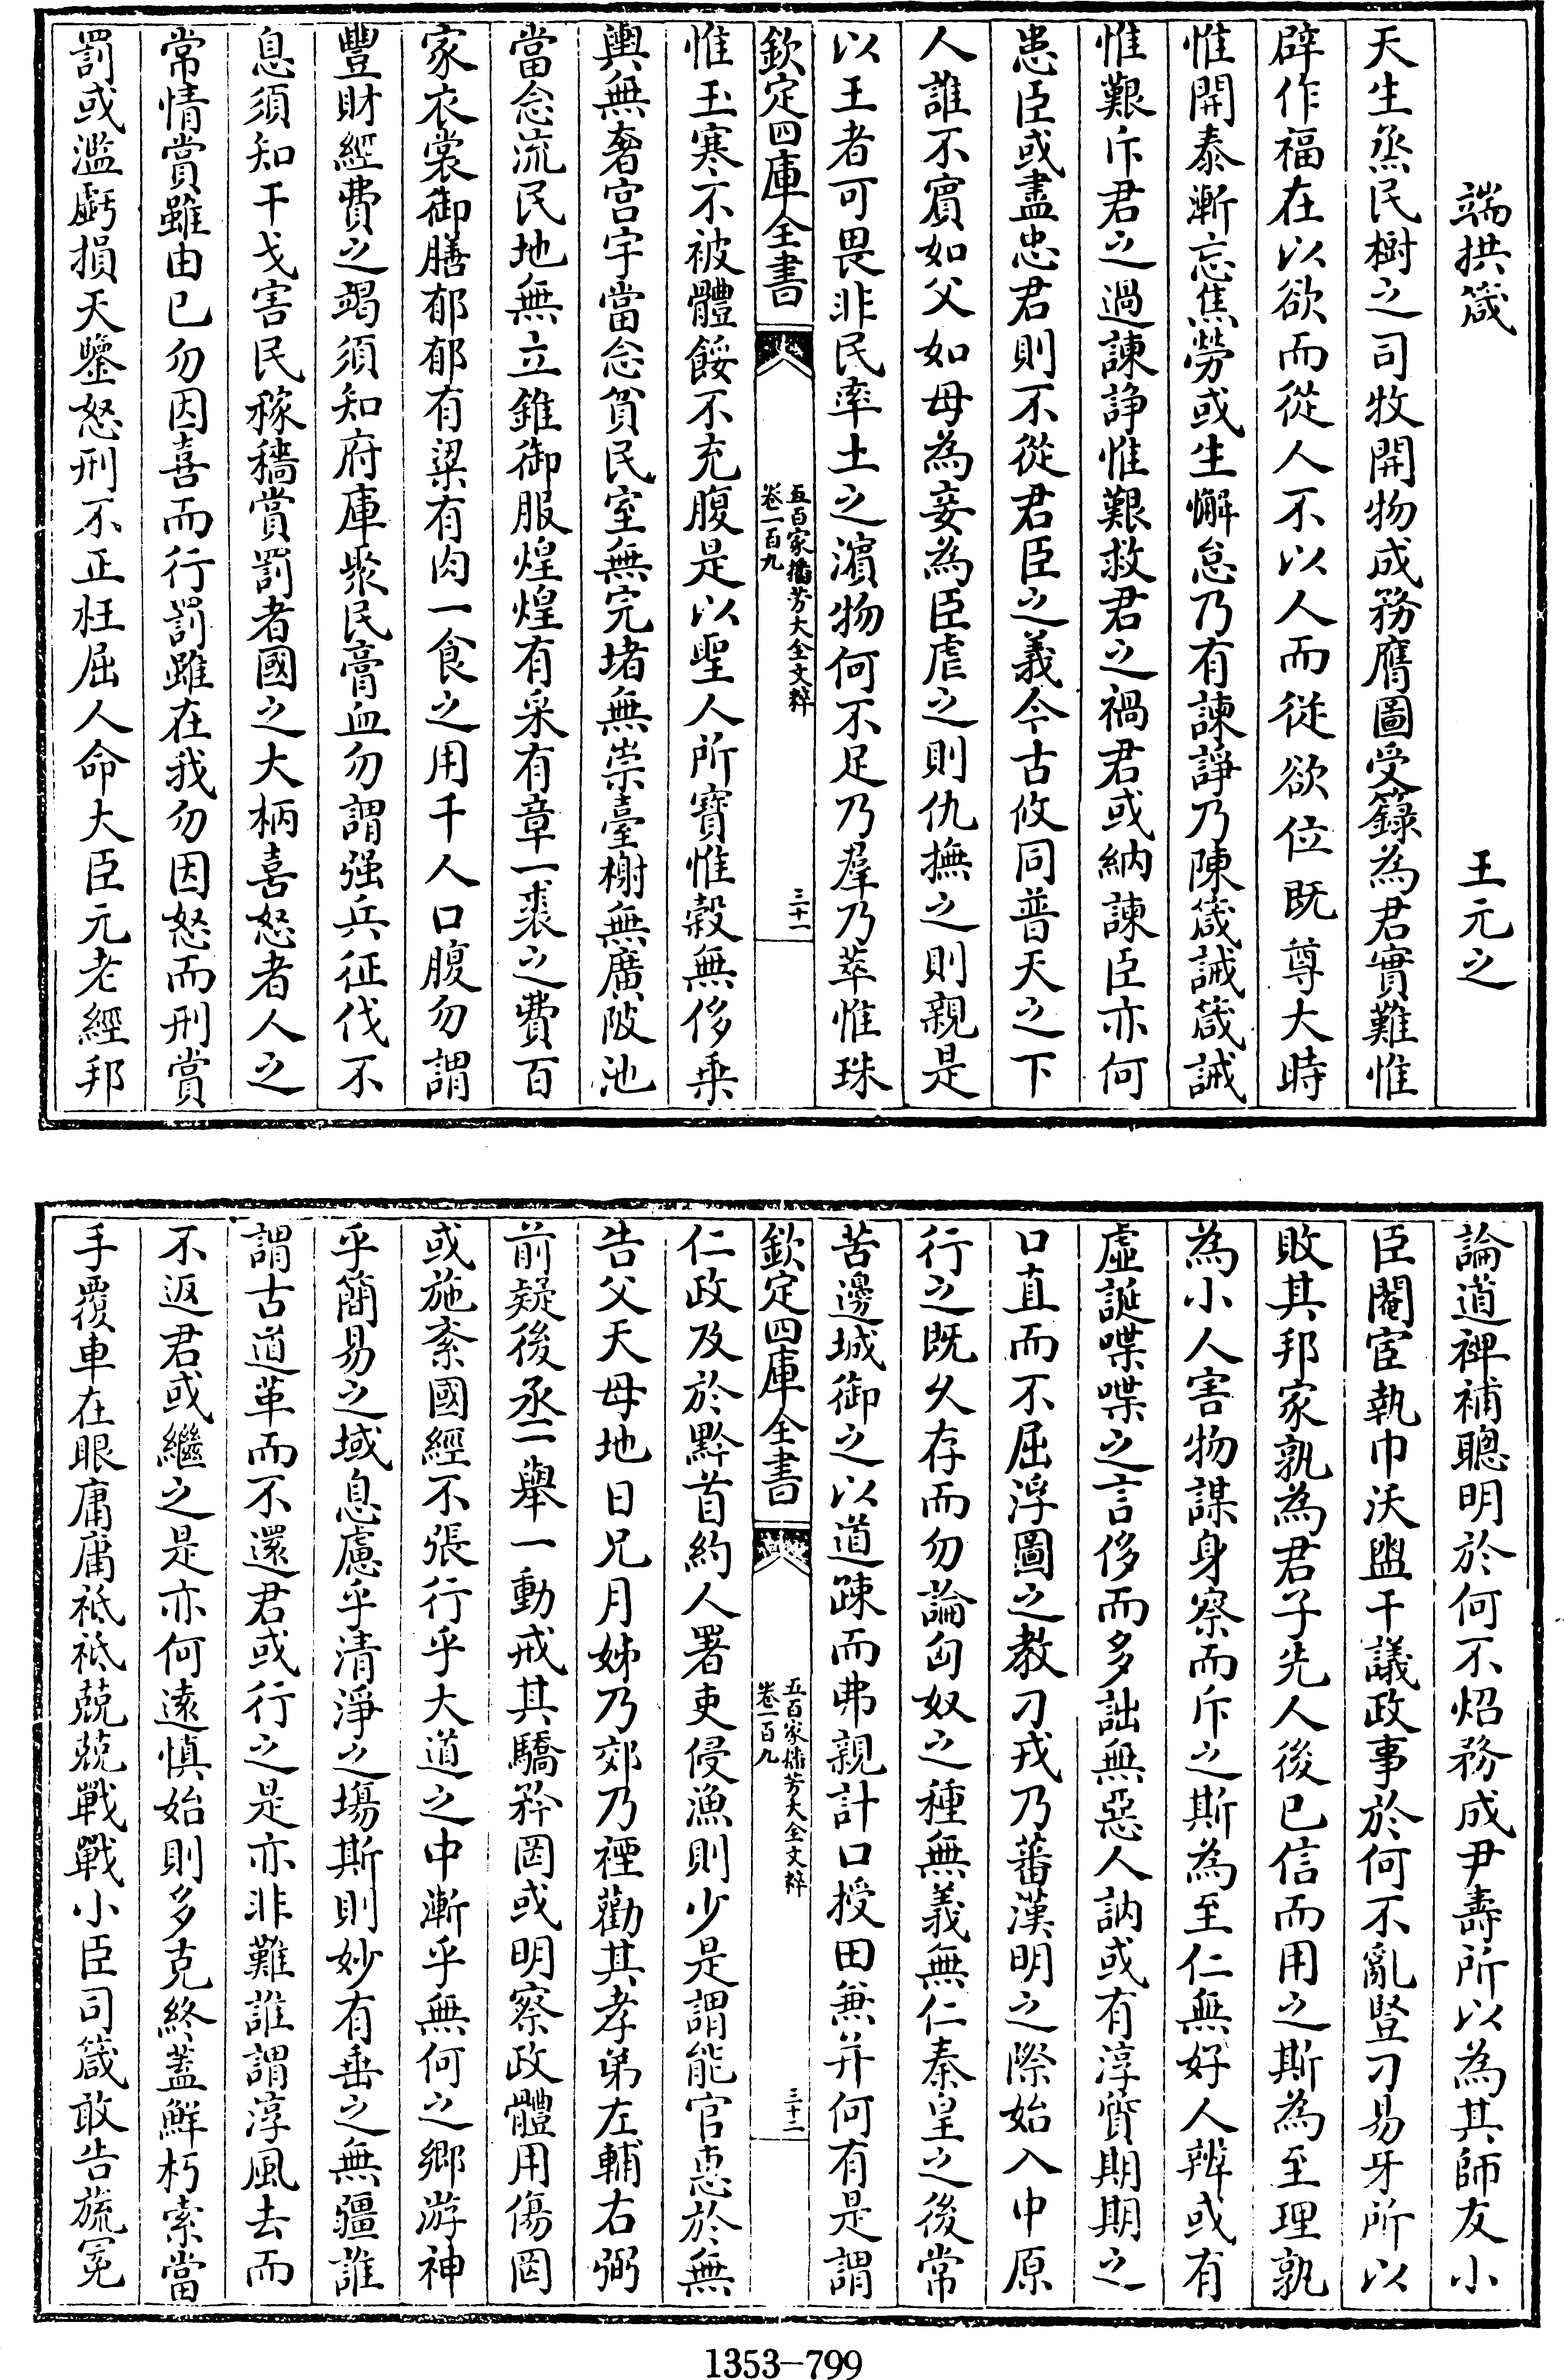 端拱箴　王元之
天生烝民樹之司牧開物成務膺圖受籙為君實難惟
辟作福在以欲而從人不以人而從欲位既尊大時
惟開泰漸忘焦勞或生懈怠乃有諫諍乃陳箴誡箴誡
惟艱斥君之過諫諍惟艱救君之禍君或納諫臣亦何
患臣或盡忠君則不從君臣之義今古攸同普天之下
人誰不賓如父如母為妾為臣虐之則仇撫之則親是
以王者可畏非民率土之濱物何不足乃羣乃萃惟珠
欽定四庫全書
五百家播芳大全文粹
卷一百九
三十一
惟玉寒不被體餒不充腹是以聖人所寶惟穀無侈乗
輿無奢宮宇當念貧民室無完堵無崇臺榭無廣陂池
當念流民地無立錐御服煌煌有采有章一裘之費百
家衣裳御膳郁郁有粱有肉一食之用千人口腹勿謂
豐財經費之竭須知府庫聚民膏血勿謂强兵征伐不
息須知干戈害民稼穡賞罰者國之大柄喜怒者人之
常情賞雖由已勿因喜而行罰雖在我勿因怒而刑賞
罰或濫虧損天鑒怒刑不正枉屈人命大臣元老經邦
論道裨補聰明於何不炤務成尹壽所以為其師友小
臣閹宦執巾沃盥干議政事於何不亂豎刁易牙所以
敗其邦家孰為君子先人後已信而用之斯為至理孰
為小人害物謀身察而斥之斯為至仁無好人辨或有
虛誕喋喋之言侈而多詘無惡人訥或有淳質期期之
口直而不屈浮圖之教刀戎乃蕃漢明之際始入中原
行之既久存而勿論匈奴之種無義無仁秦皇之後常
苦邊城御之以道疎而弗親計口授田兼并何有是謂
欽定四庫全書
五百家播芳大全文粹
卷一百九
三十二
仁政及於黔首約人署吏侵漁則少是謂能官惠於無
告父天母地日兄月姊乃郊乃禋勸其孝弟左輔右弼
前疑後丞一舉一動戒其驕矜罔或明察政體用傷罔
或施紊國經不張行乎大道之中漸乎無何之鄉游神
乎簡易之域息慮乎清淨之塲斯則妙有垂之無疆誰
謂古道革而不還君或行之是亦非難誰謂淳風去而
不返君或繼之是亦何遠慎始則多克終蓋鮮朽索當
手覆車在眼庸庸祗祗兢兢戰戰小臣司箴敢告旒冕
1353-799